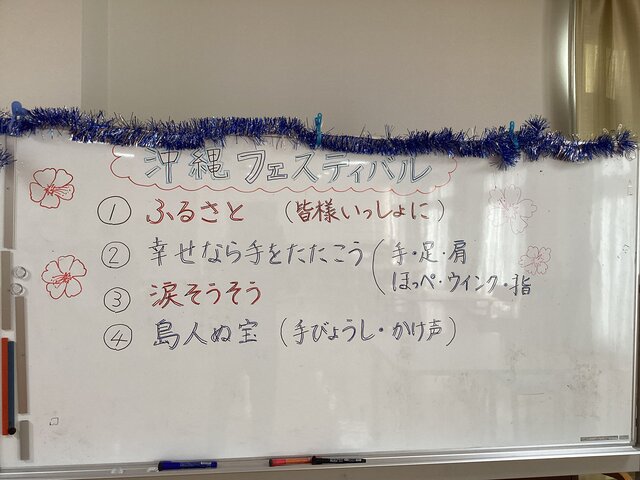 沖縄フェスティバル
① ふるさと (皆様いっしょに)
② 幸せなら手をたたこう (手・足・肩
ほっぺ・ウインク・指
③ 涙そうそう
④ 島人ぬ宝 (手びょうし・かけ声)